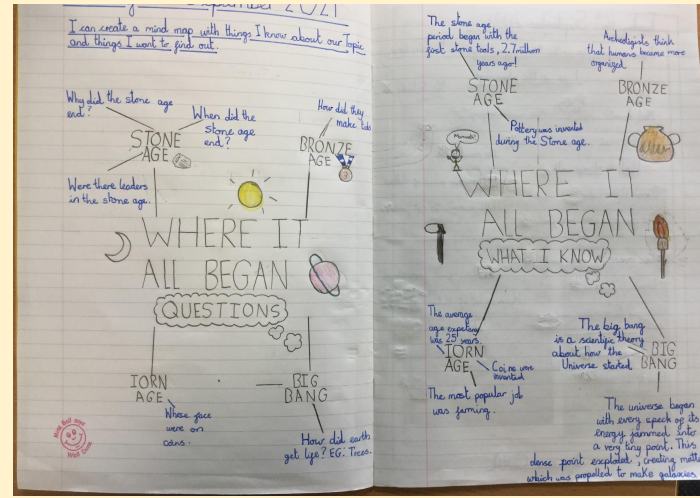 September 2021
I can create a mind map with things I know about our Topic
and things I want to find out.
Why did the stone age
end?
When did the
stone age
end?
STONE
AGE
Were there leaders
in the stone age.
How did they
make
BRONZE
AGE
WHERE IT
ALL BEGAN
QUESTIONS
IORN
AGE
Whose face
were on
coins.
BIG
BANG
How did earth
get life? EG: Trees.
Well Done
The stone age
period began with the
first stone tools, 2.7million
years ago!
STONE
AGE
Pottery was invented
during the Stone age.
Archeoligists think
that humans became more
organized.
BRONZE
AGE
WHERE IT
ALL BEGAN
WHAT I KNOW
The average
age expetency
was 25 years.
IORN
AGE
Coins were
invented
The most popular job
was farming.
The big bang
is a scientific theory
about how the
Universe started
BIG
BANG
The universe began
with every speck of its
energy jammed into
a very tiny point. This
dense point exploded, creating
which was propelled to make galaxies